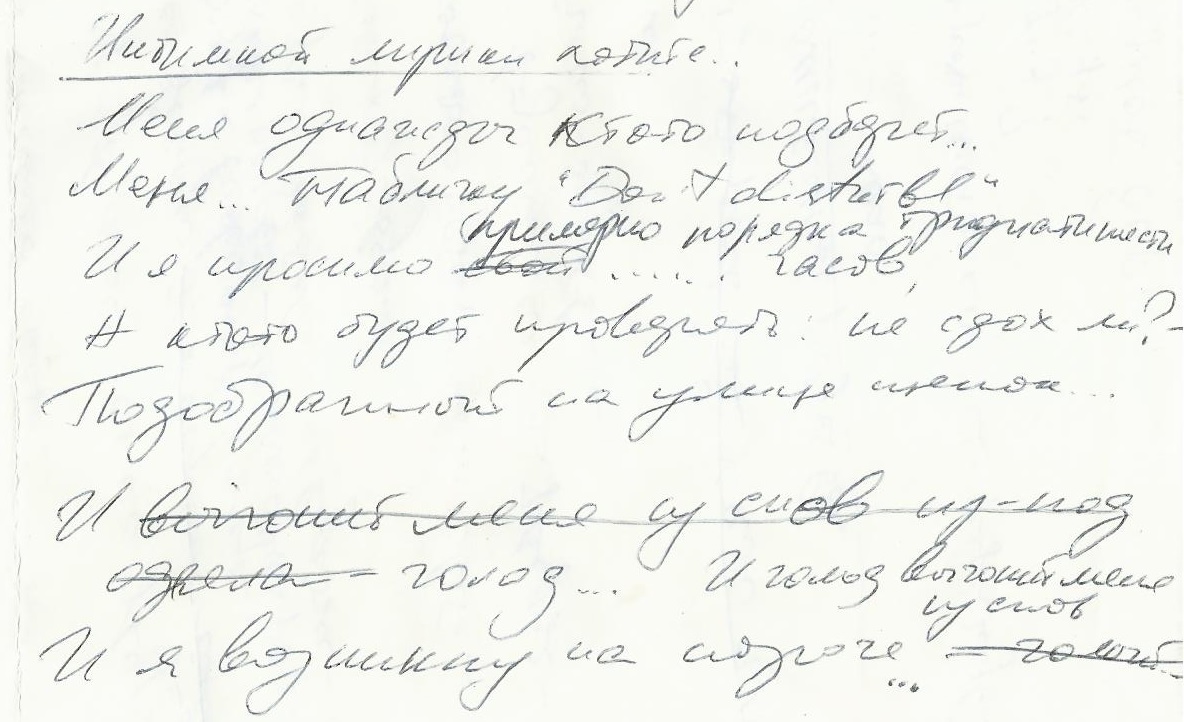 Интимной лирики хотите..
Меня однажды Кто то подберёт...
Меня... Табличку "Don't disturbe"
примерно порядка тридцатишести
И я просплю свой ....... часов,
А кто то будет проверять: не сдох ли? -
Подобранный на улице щенок...
И выгонит меня из снов из-под
одеяла - голод... И голод выгонит меня
из снов
И я возникну на пороге ... - голый...